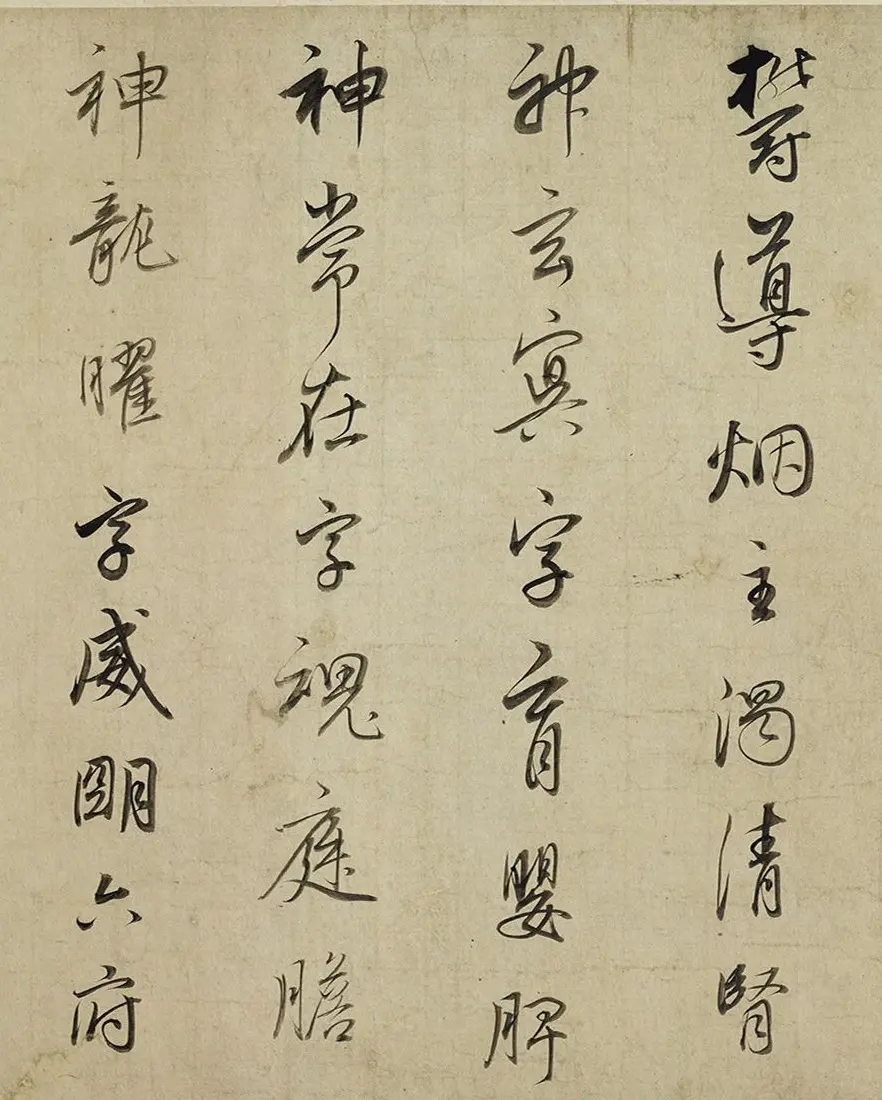 欝導烟主濁清腎
神玄冥字育嬰脾
神常在字魂庭膽
神龍曜字威明六府